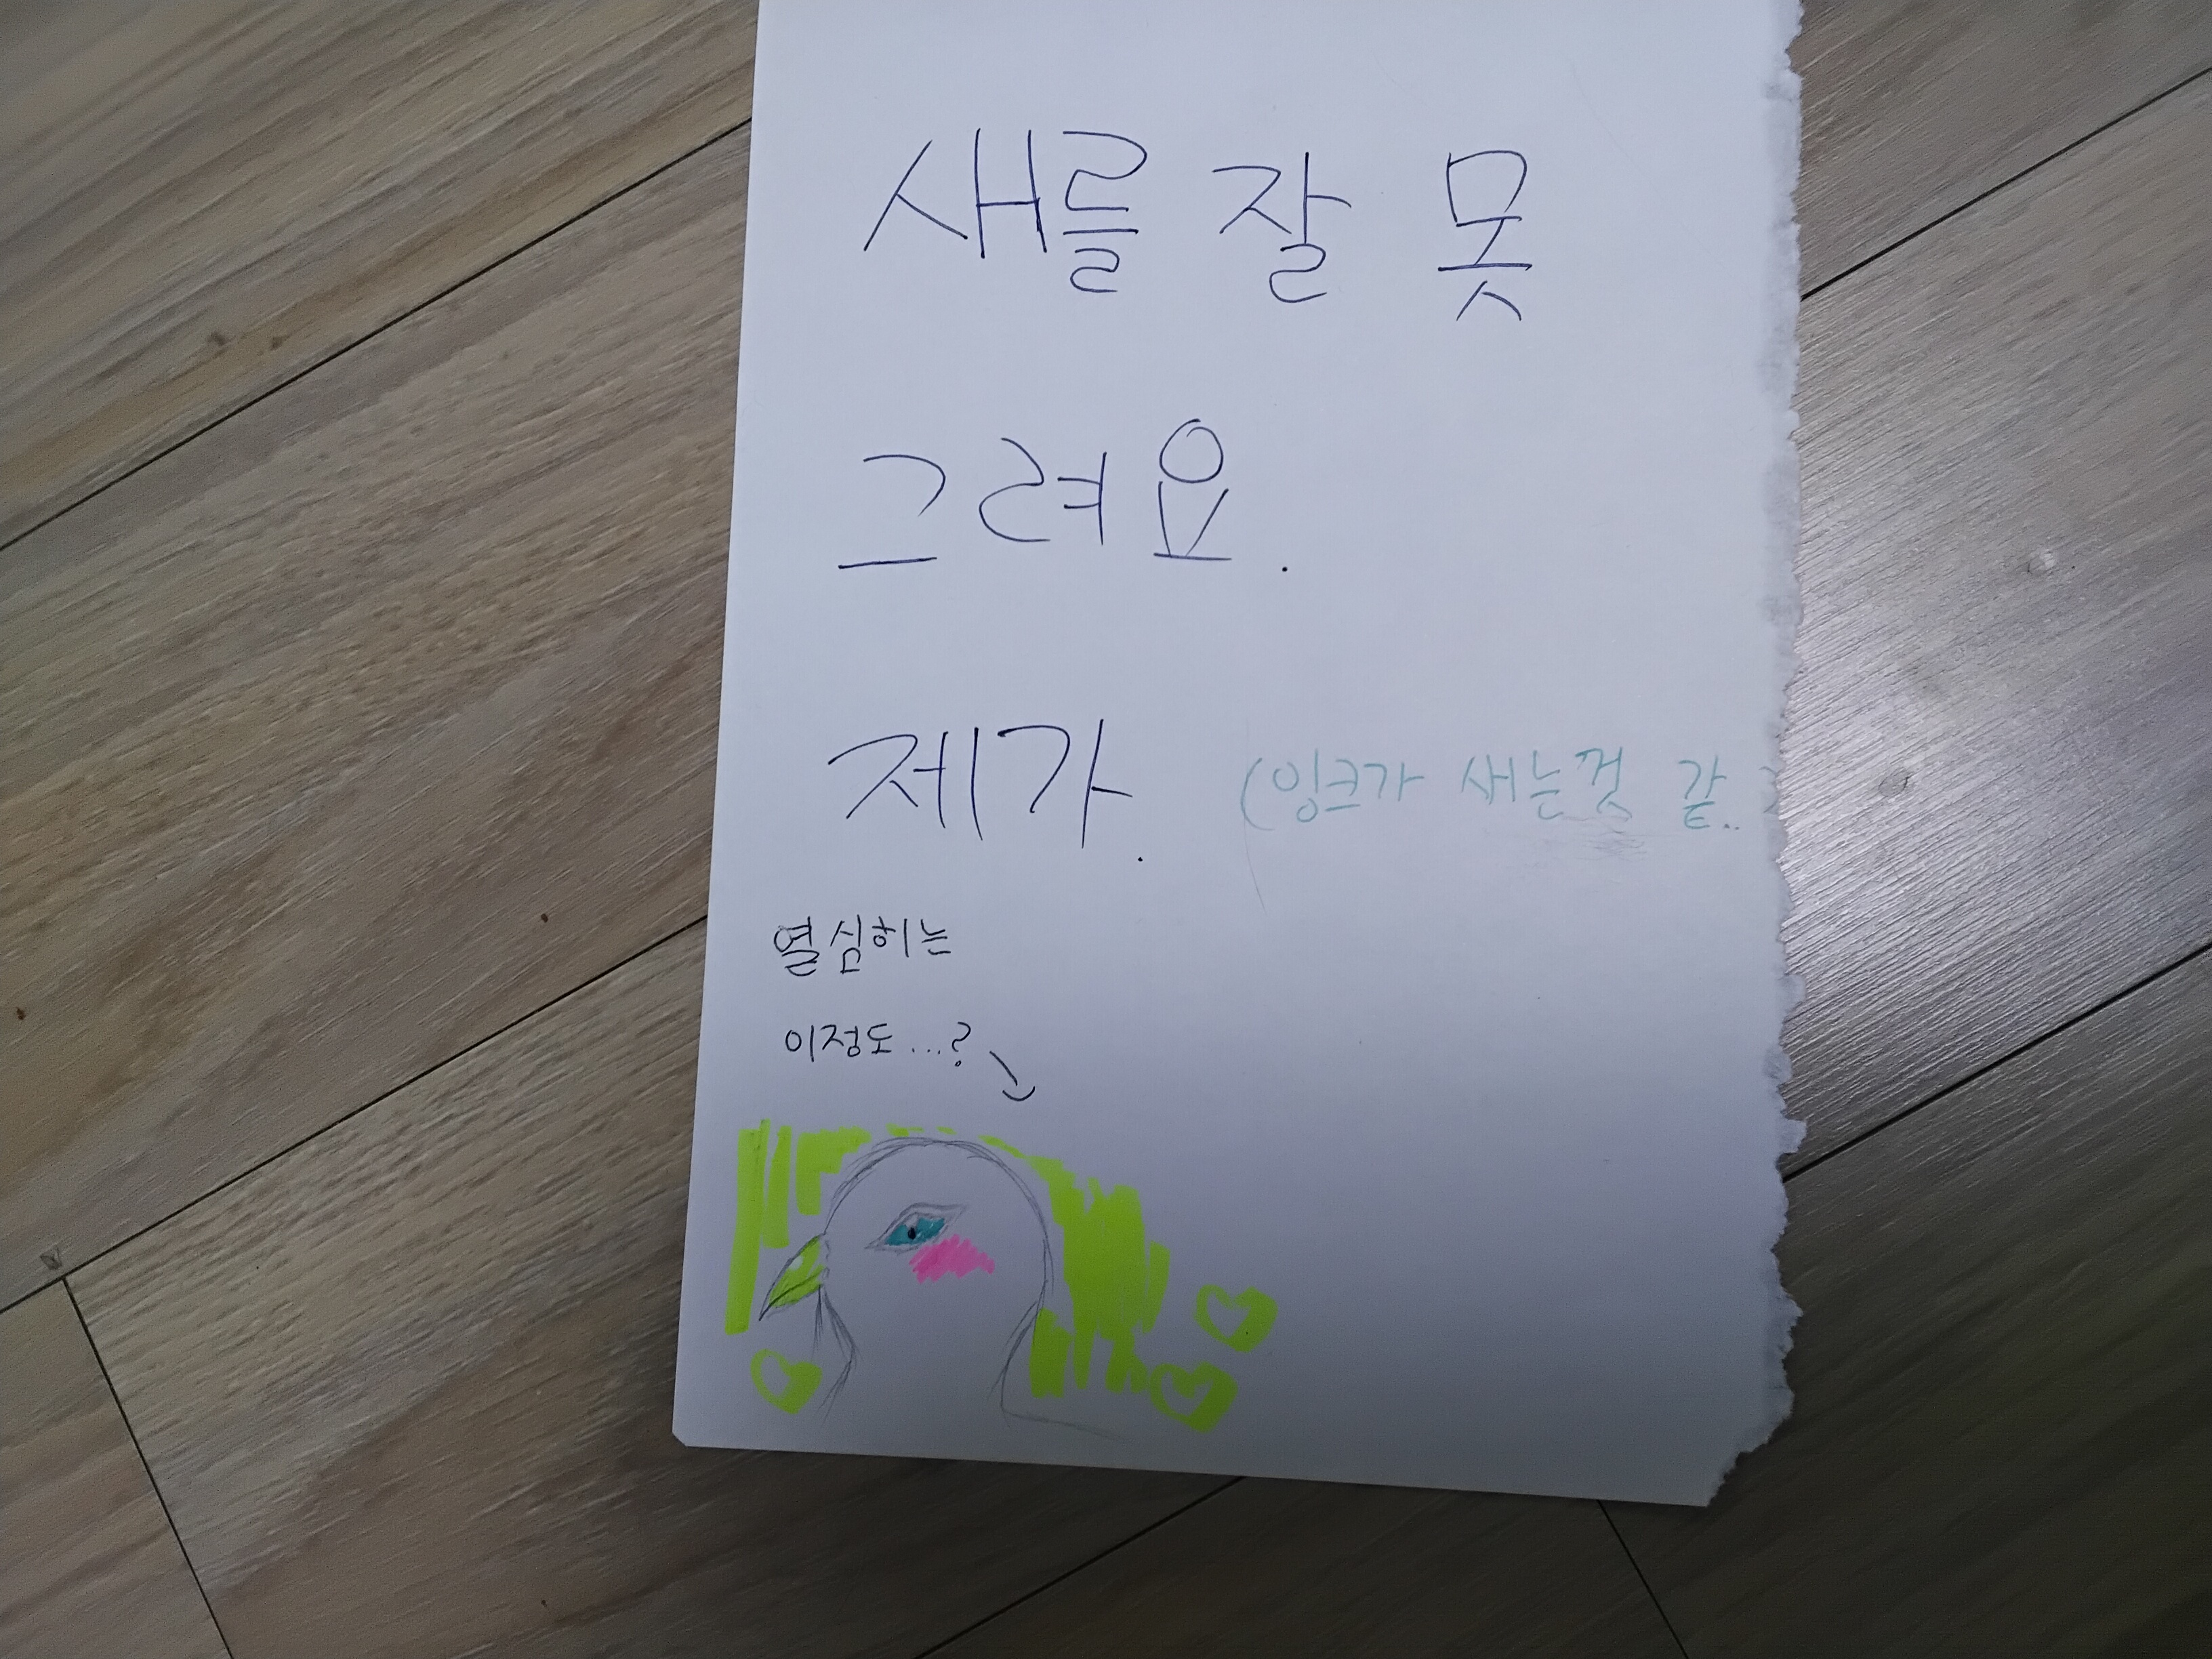 새를 잘 못
그려요.
제가. (잉크가 새는것 같..
열심히는
이정도...?